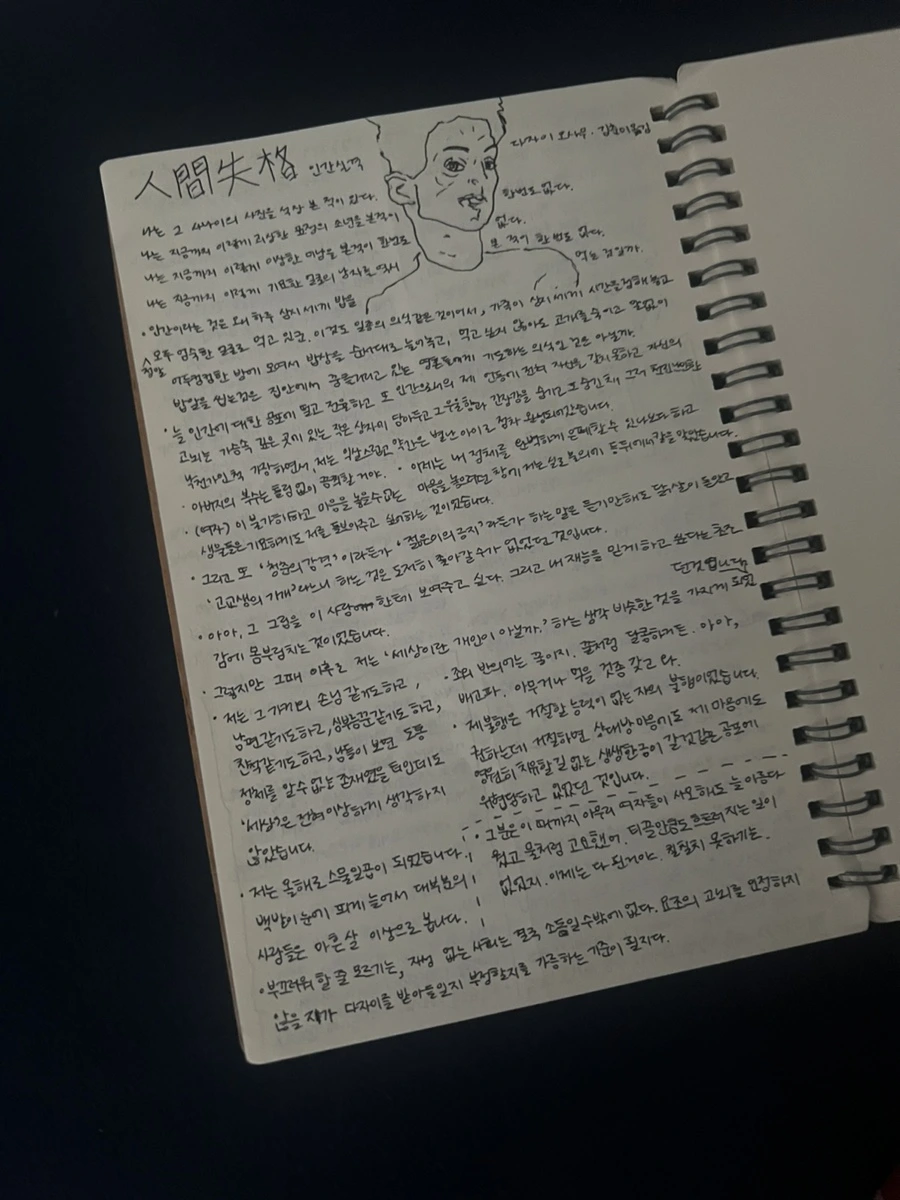 人間失格 인간실격
다자이 오사무. 김춘미 옮김
나는 그 사나이의 사진을 석 장 본 적이 있다.
나는 지금까지 이렇게 괴상한 표정의 소년을 본 적이 한번도 없다.
나는 지금까지 이렇게 이상한 미남을 본 적이 한번도 없다.
나는 지금까지 이렇게 기묘한 얼굴의 남자를 역시 본 적이 한 번도 없다.
· 인간이라는 것은 왜 하루 삼시 세끼 밥을 먹는 걸까.
정말 모두 엄숙한 얼굴로 먹고 있군. 이것도 일종의 의식같은 것이어서, 가족이 삼시 세끼 시간을 정해 놓고
어두컴컴한 방에 모여서 밥상을 순서대로 늘어놓고, 먹고 싶지 않아도 고개를 숙이고 말없이
밥알을 씹는 것은 집안에서 꿈틀거리고 있는 영혼들에게 기도하는 의식인 것은 아닐까.
· 늘 인간에 대한 공포에 떨고 전율하고 또 인간으로서의 제 언동에 전혀 자신을 갖지 못하고 자신의
고뇌는 가슴속 깊은 곳에 있는 작은 상자에 담아두고 그 우울함과 긴장감을 숨기고 또 숨긴 채, 그저 천진난만한
낙천가인 척 가장하면서, 저는 익살스럽고 약간은 별난 아이로 점차 완성되어갔습니다.
· 아버지의 복수는 틀림없이 끔찍할 거야. · 이제는 내 정체를 완벽하게 은폐할 수 있나보다 하고
마음을 놓으려던 참에 저는 실로 불의에 등 뒤에서 칼을 맞았습니다.
· (여자) 이 불가해하고 마음을 놓을 수 없는
생물들은 기묘하게도 저를 돌보아주고 싶어하는 것이었습니다.
· 그리고 또 '청춘의 감격'이라든가 '젊은이의 긍지'라든가 하는 말은 듣기만 해도 닭살이 돋았고
'고교생의 기개'라느니 하는 것은 도저히 좇아갈 수가 없었던 것입니다.
· 아아, 그 그림을 이 사람한테 보여주고 싶다. 그리고 내 재능을 믿게 하고 싶다는 초조
감에 몸부림치는 것이었습니다.
· 그렇지만 그때 이후로 저는 '세상이란 개인이 아닐까.' 하는 생각 비슷한 것을 가지게 되었
던 것입니다.
· 저는 그 가게의 손님 같기도 하고,
남편 같기도 하고, 심부름꾼 같기도 하고,
친척 같기도 하고, 남들이 보면 도통
정체를 알 수 없는 존재였을 터인데도
'세상'은 전혀 이상하게 생각하지
않았습니다.
· 저는 올해로 스물일곱이 되었습니다.
백발이 눈에 띄게 늘어서 대부분의
사람들은 마흔 살 이상으로 봅니다.
· 죄의 반의어는 꿀이지. 꿀처럼 달콤하거든. 아아,
배고파. 아무거나 먹을 것 좀 갖고 와.
· 제 불행은 거절할 능력이 없는 자의 불행이었습니다.
권하는데 거절하면 상대방 마음에도 제 마음에도
영원히 치유할 길 없는 생생한 금이 갈 것 같은 공포에
위협당하고 있었던 것입니다.
· 그분은 이 때까지 아무리 여자들이 사모해도 늘 아름다
웠고 물처럼 고요했어. 티끌만큼도 흐트러지는 일이
없었지. 이제는 다 된 거야. 칠칠치 못하기는.
· 부끄러워할 줄 모르기는, 자성 없는 사회는 결국 소돔일 수밖에 없다. 요조의 고뇌를 인정하지
않을지가 다자이를 받아들일지 부정할지를 가름하는 기준이 될지다.